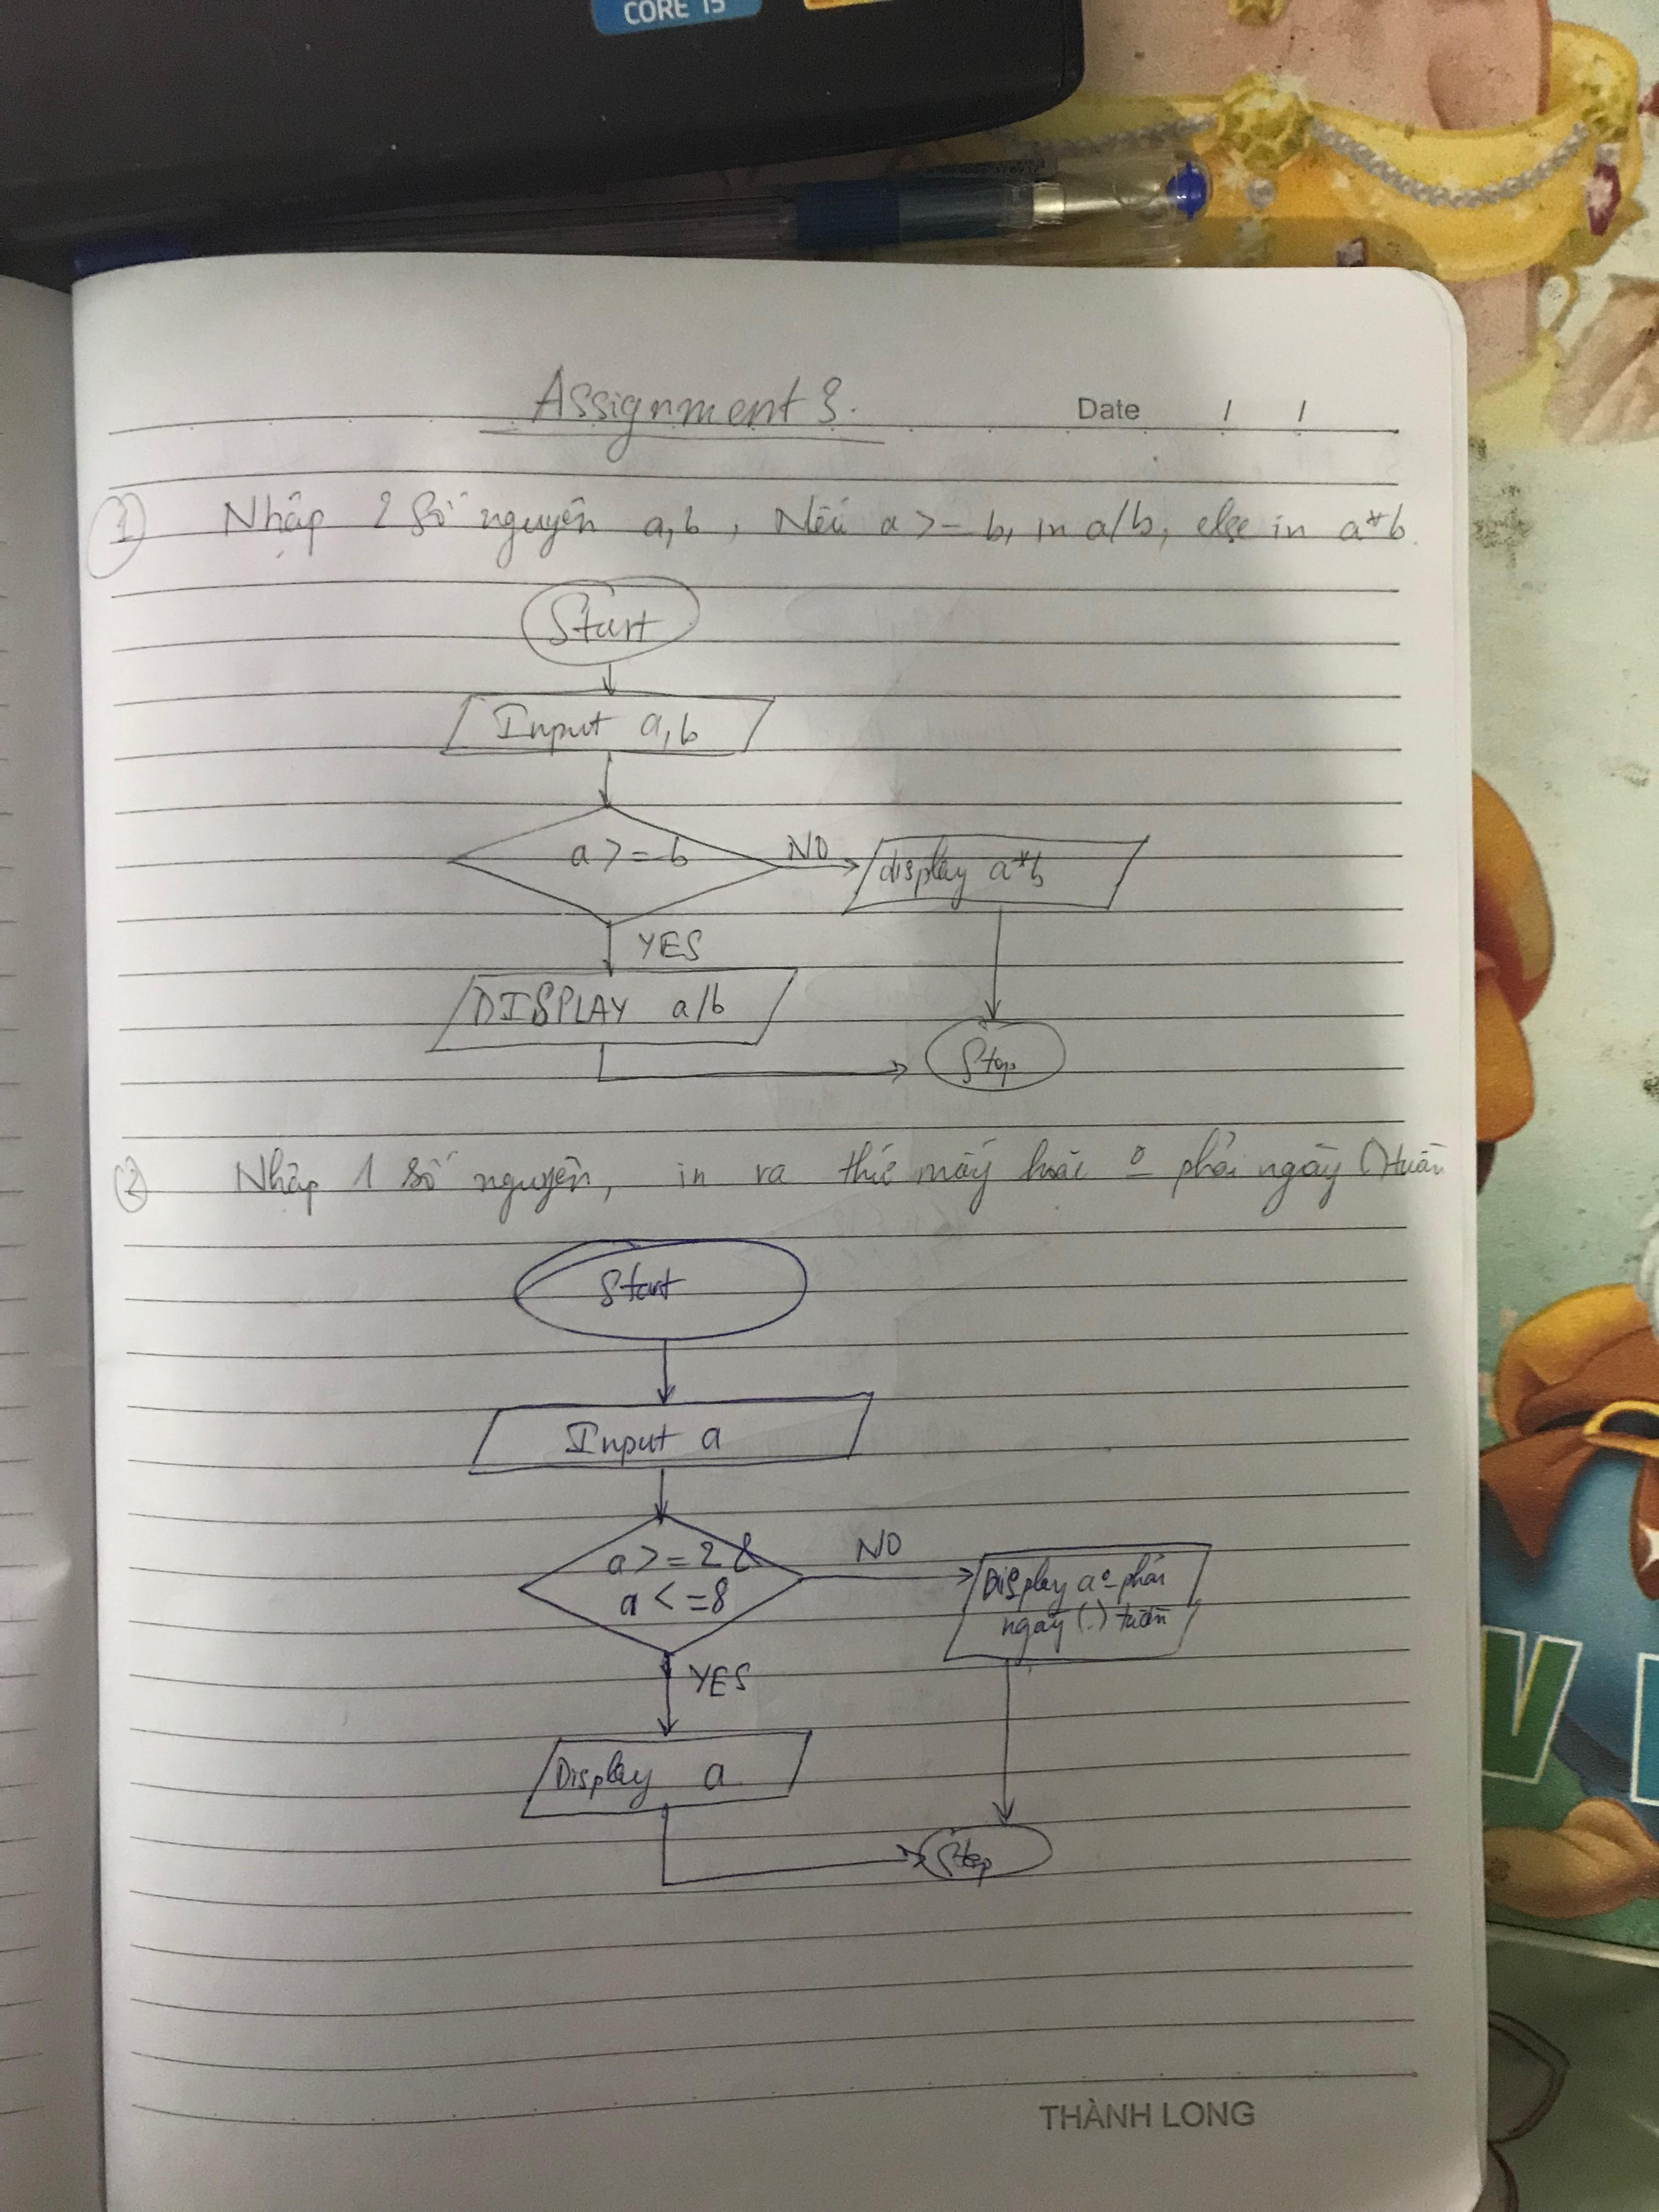 CORE i5
Assignment 3.
Date / /
① Nhập 2 số nguyên a,b, Nếu a >= b, in a/b, else in a*b.
Start
Input a,b
a >= b
NO
display a*b
YES
DISPLAY a/b
Stop
② Nhập 1 số nguyên, in ra thứ mấy hoặc o phải ngày (.) tuần
Start
Input a
a >= 2 &
a <= 8
NO
Display a o phải
ngày (.) tuần
YES
Display a
Stop
V
THÀNH LONG